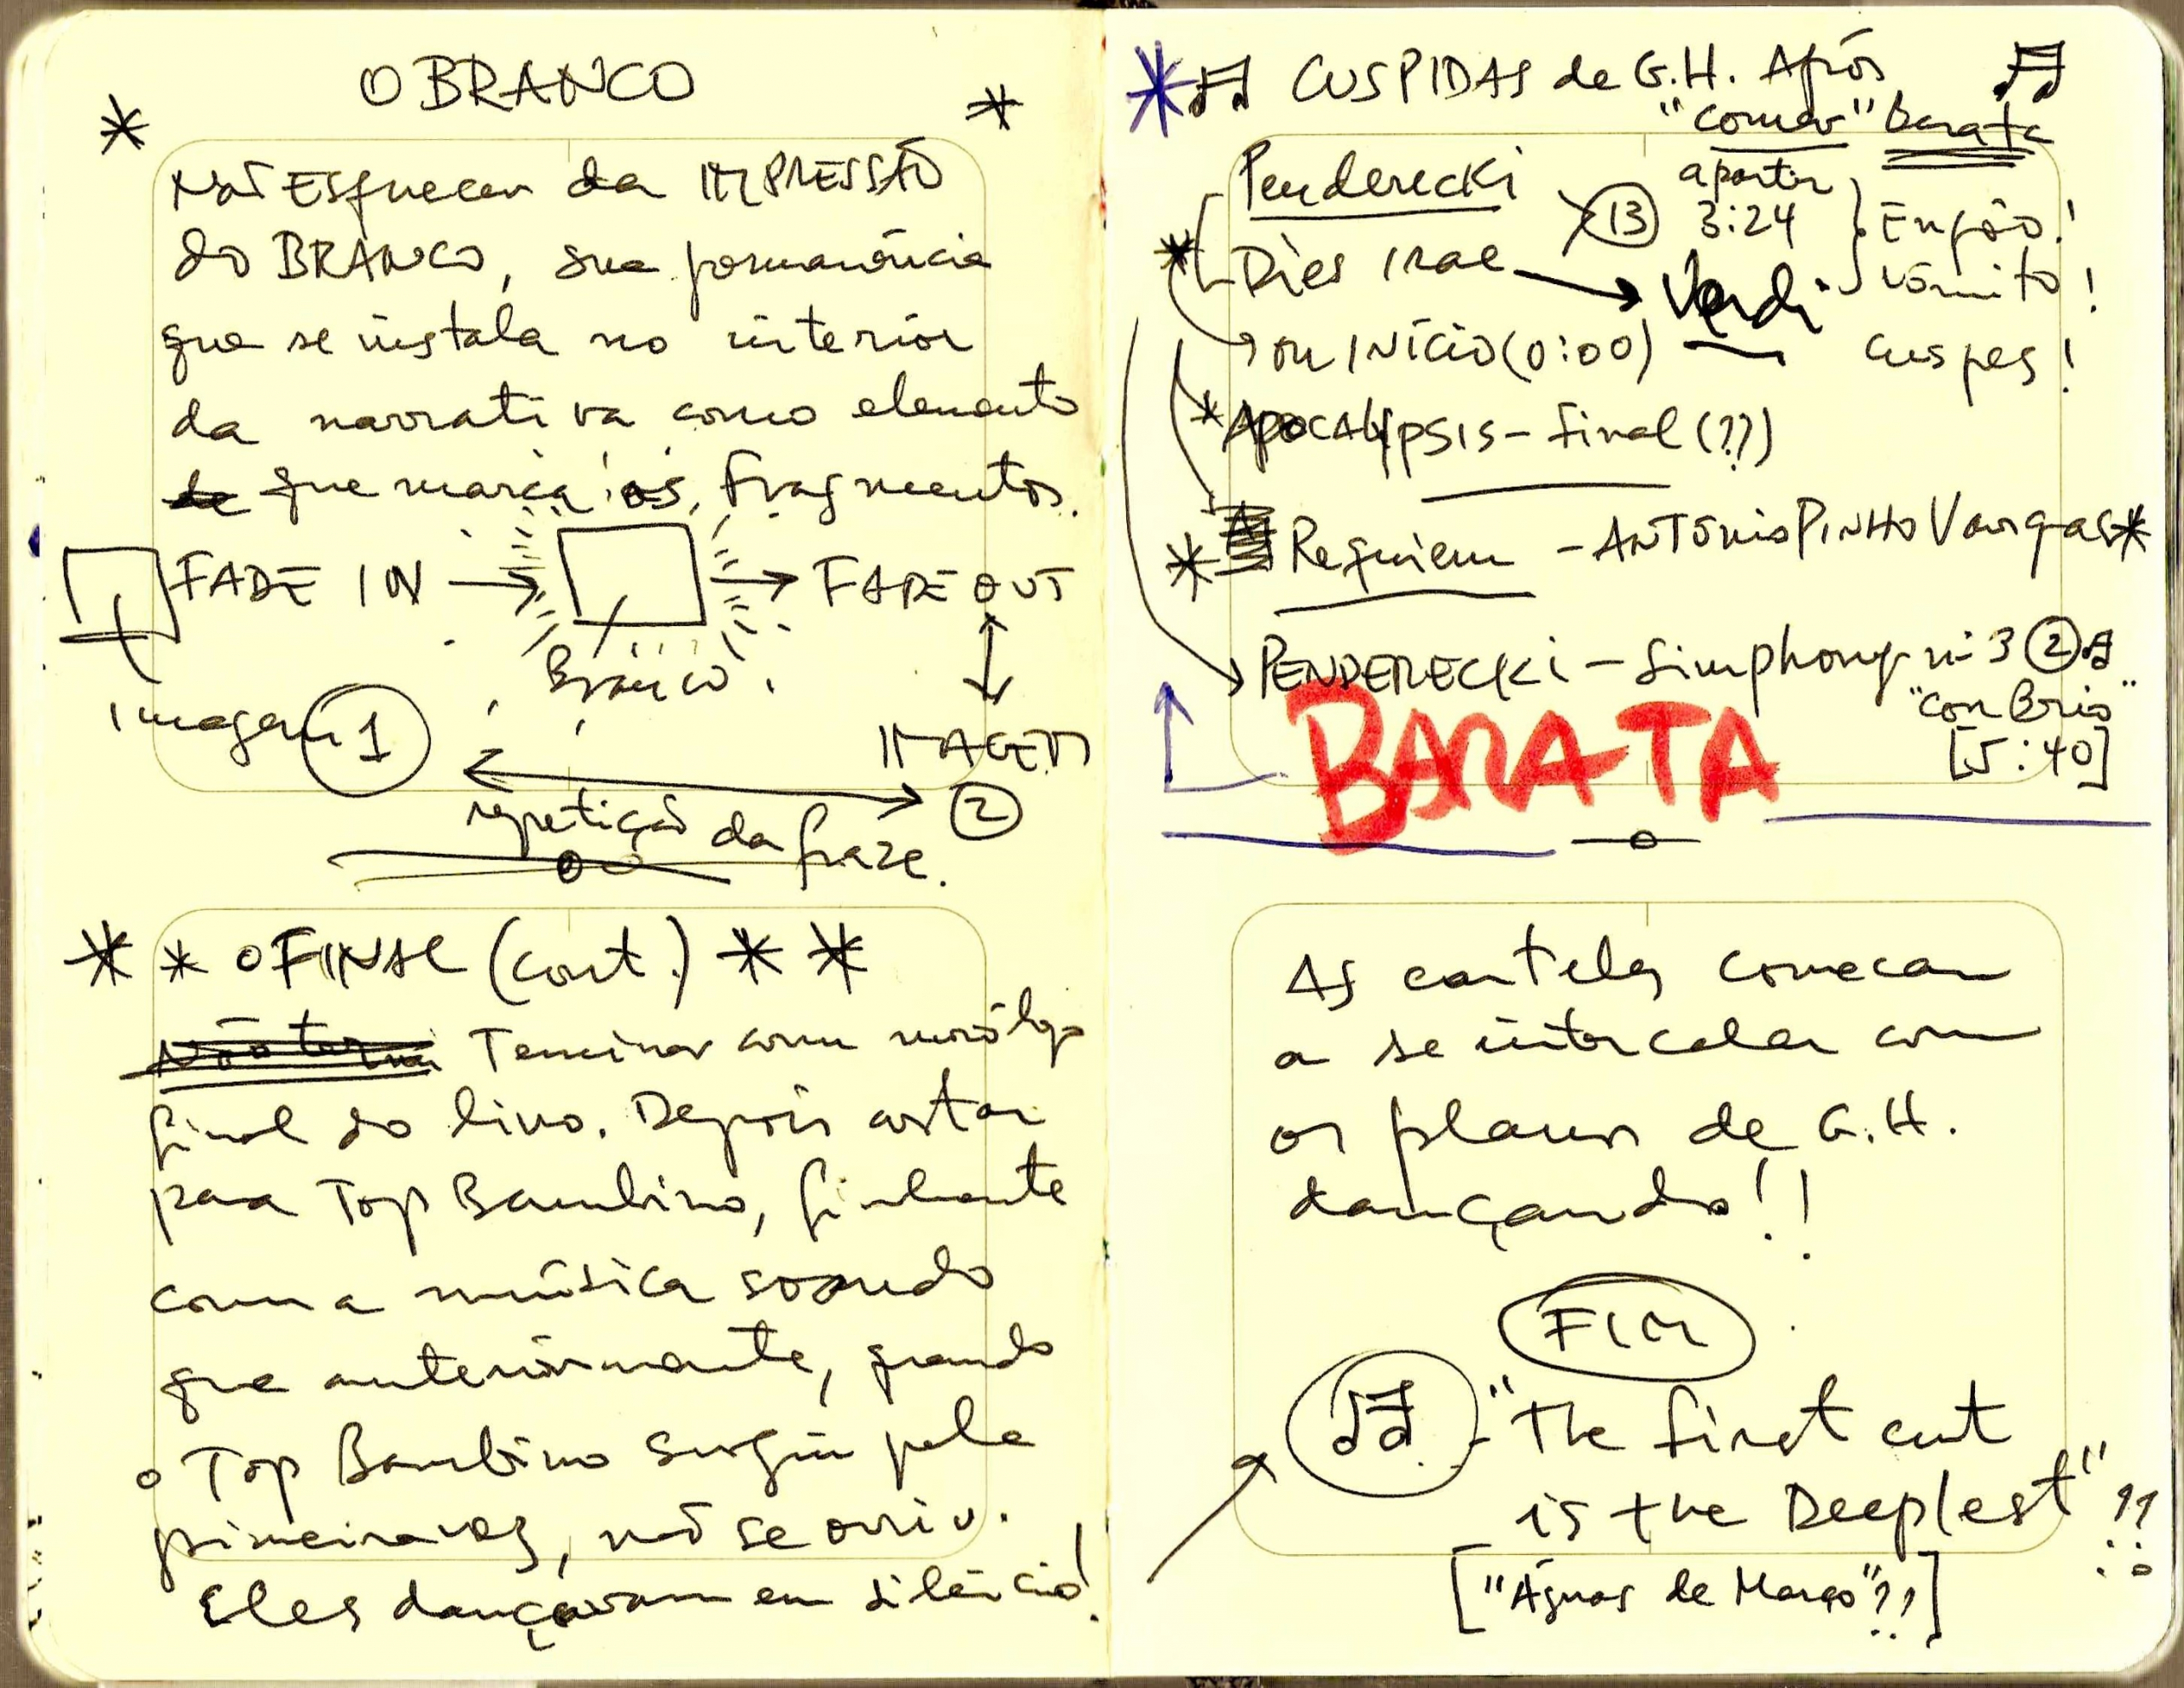 O BRANCO
Não Esquecer da IMPRESSÃO
do BRANCO, sua permanência
que se instala no interior
da narrativa como elemento
de que marca os fragmentos.
FADE IN → → FADE OUT
Branco
Imagem 1
IMAGEM
2
repetição da frase.
O FINAL (cont.)
Não termi Terminar com monólogo
final do livro. Depois cortar
para Top Bambino, finalmente
com a música soando
que anteriormente, quando
o Top Bambino surgiu pela
primeira vez, não se ouviu.
Eles dançavam em silêncio!
CUSPIDAS de G.H. Após
"comer" barata
Penderecki
a partir
13 3:24
Dies Irae → Verdi
Enjôo!
vômito!
cuspes!
ou INÍCIO (0:00)
APOCALYPSIS - final (??)
Requiem - ANTÓNIO PINHO Vargas
PENDERECKI - Simphony nº 3 2
"Con Brio"
[5:40]
BARATA
As cartelas começam
a se intercalar com
os planos de G.H.
dançando!!
FIM
"The first cut
is the Deeplest"??
["Águas de Março"??]